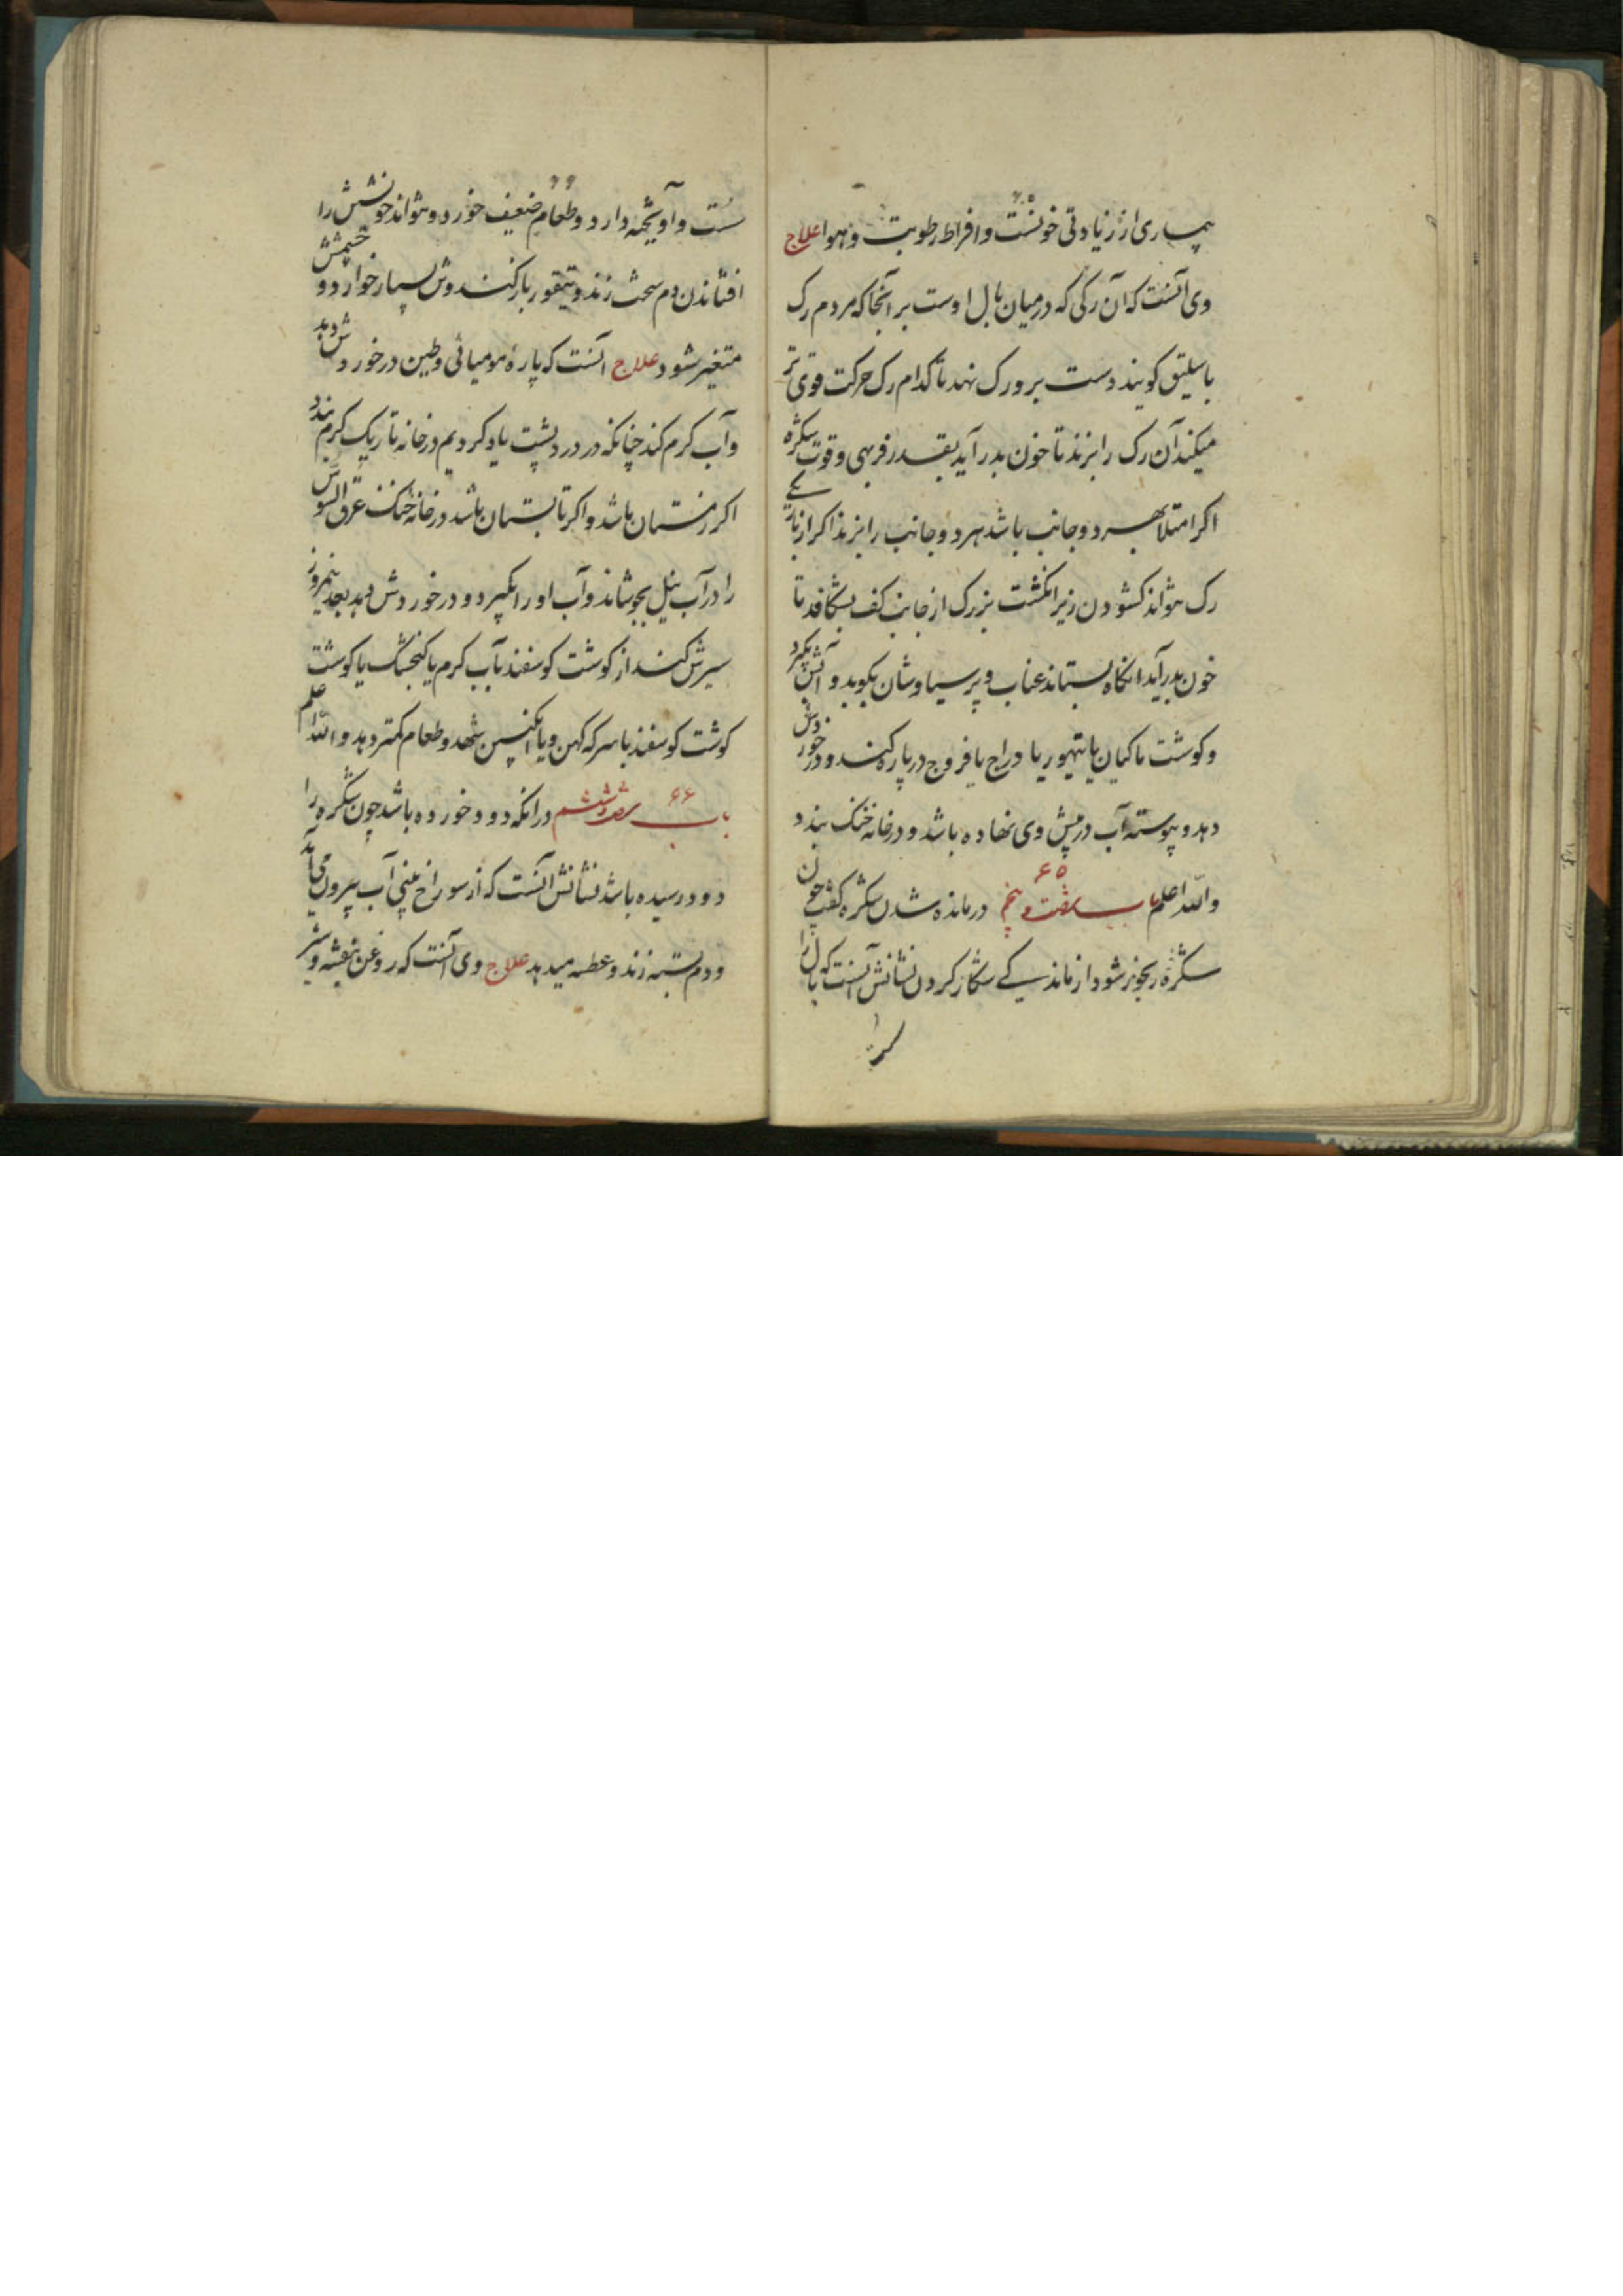 بیماری از زیادتی خونست و افراط رطوبت و هوا علاج
وی آنست که آن رکی که در میان بال اوست بر آنجا که مردم رک
باسلیق کویند دست بر و رک نهد تا کدام رک حرکت قوی تر
میکند آن رک را بزند تا خون بدر آید بقدر فربهی و قوت شکره
اکر امتلا بهر دو جانب باشد هر دو جانب را بزند اکر از
رک نتواند کشودن زیر انکشت بزرک از جانب کف بشکافد تا
خون بدر آید انکاه بستاند عناب و پرسیاوشان بکوبد و آبش بکیرد
و کوشت ماکیان یا تیهو یا دراج یا فروج در پاره کند و در خوردش
دهد و پیوسته آب در پیش وی نهاده باشد و در خانه خنک بندد
والله اعلم باب شصت و پنجم ۶۵ در مانده شدن شکره کفت چون
شکره رنجور شود از ماندیکی شکار کردن نشانش آنست که بال را
سست و آویخته دارد و طعام ضعیف خورد و نتواند خویشتن را
افشاندن دم سخت زند و باز کند و بسیار خوارد و چشمش
متغیر شود علاج آنست که پاره مومیائی و طین در خوردش دهد
و آب کرم کند چنانکه در درد پشت یاد کردیم در خانه تاریک کرم بندد
اکر زمستان باشد و اکر تابستان باشد در خانه خنک عرق السوس
را در آب نیل بجوشاند و آب او را بکیرد و در خوردش دهد بعد نیمروز
سیرش کند از کوشت کوسفند بآب کرم یا کنجشک یا کوشت
کوشت کوسفند با سرکه کهن و یا انکبین شهد و طعام کمتر دهد والله اعلم
باب شصت و ششم ۶۶ در آنکه دود خورده باشد چون شکره را
دود رسیده باشد نشانش آنست که از سوراخ بینی آب بیرون می آید
و دم بسته زند و عطسه میدهد علاج وی آنست که روغن بنفشه و شیر